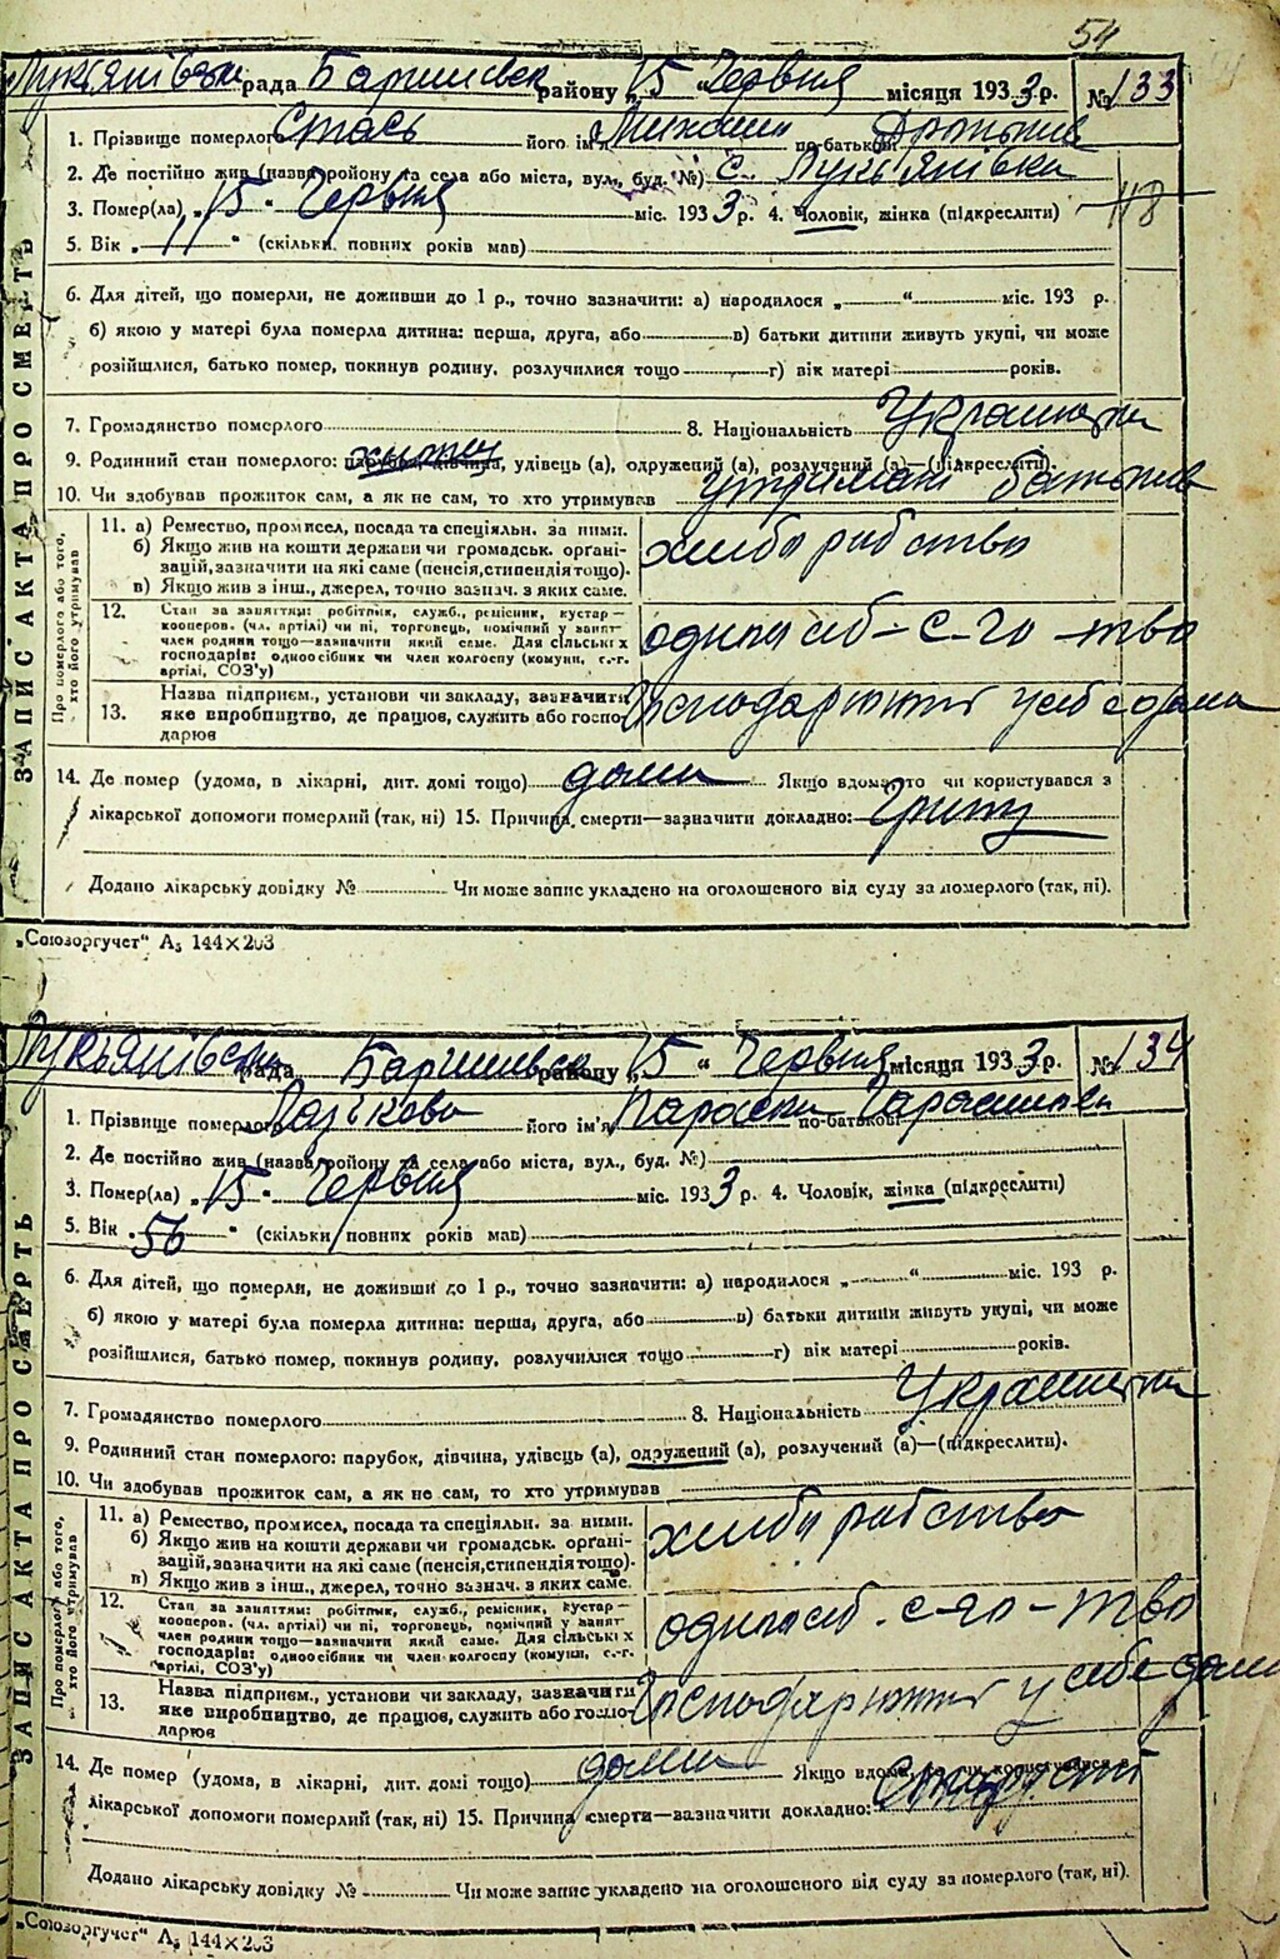 54
Лукьянівська рада Баришівськ району „15 “ Червня місяця 1933 р. № 133
1. Прізвище померлого Стась його ім'я Михайло по-батькові
2. Де постійно жив (назва району та села або міста, вул., буд. №) с. Лукьянівка
3. Помер(ла) „15 “ Червня міс. 1933 р. 4. Чоловік, жінка (підкреслити) 118
5. Вік „ 11 “ (скільки повних років мав)
6. Для дітей, що померли, не доживши до 1 р., точно зазначити: а) народилося „ “ міс. 193 р.
б) якою у матері була померла дитина: перша, друга, або в) батьки дитини живуть укупі, чи може
розійшлися, батько помер, покинув родину, розлучилися тощо г) вік матері років.
7. Громадянство померлого 8. Національність Украинець
9. Родинний стан померлого: парубок, дівчина, удівець (а), одружений (а), розлучений (а)—(підкреслити).
10. Чи здобував прожиток сам, а як не сам, то хто утримував утримані батьків
ЗАПИС АКТА ПРО СМЕРТЬ
Про померлого або того, хто його утримував
11. а) Ремество, промисел, посада та спеціяльн. за ними.
б) Якщо жив на кошти держави чи громадськ. органі-
зацій, зазначити на які саме (пенсія, стипендія тощо).
в) Якщо жив з інш., джерел, точно зазнач. з яких саме.
хлиборобство
12. Стан за заняттям: робітник, служб., ремісник, кустар—
кооперов. (чл. артілі) чи ні, торговець, помічний у занят
член родини тощо—зазначити який саме. Для сільських
господарів: одноосібник чи член колгоспу (комуни, с.-г.
артілі, СОЗ'у)
одноосіб-с-го-тво
13. Назва підприєм., установи чи закладу, зазначити
яке виробництво, де працює, служить або госпо-
дарює
Господарюють у себе дома
14. Де помер (удома, в лікарні, дит. домі тощо) дома Якщо вдома, то чи користувався з
лікарської допомоги померлий (так, ні) 15. Причина смерти—зазначити докладно: Грип
Додано лікарську довідку № Чи може запис укладено на оголошеного від суду за померлого (так, ні).
„Союзоргучет“ А₅ 144×203
Лукьянівська рада Баришівськ району „15 “ Червня місяця 1933 р. № 134
1. Прізвище померлого його ім'я Параска по-батькові Гарасимівна
2. Де постійно жив (назва району та села або міста, вул., буд. №)
3. Помер(ла) „15 “ Червня міс. 1933 р. 4. Чоловік, жінка (підкреслити)
5. Вік „ 56 “ (скільки повних років мав)
6. Для дітей, що померли, не доживши до 1 р., точно зазначити: а) народилося „ “ міс. 193 р.
б) якою у матері була померла дитина: перша, друга, або в) батьки дитини живуть укупі, чи може
розійшлися, батько помер, покинув родину, розлучилися тощо г) вік матері років.
7. Громадянство померлого 8. Національність Украинець
9. Родинний стан померлого: парубок, дівчина, удівець (а), одружений (а), розлучений (а)—(підкреслити).
10. Чи здобував прожиток сам, а як не сам, то хто утримував
ЗАПИС АКТА ПРО СМЕРТЬ
Про померлого або того, хто його утримував
11. а) Ремество, промисел, посада та спеціяльн. за ними.
б) Якщо жив на кошти держави чи громадськ. органі-
зацій, зазначити на які саме (пенсія, стипендія тощо).
в) Якщо жив з інш., джерел, точно зазнач. з яких саме.
хлиборобство
12. Стан за заняттям: робітник, служб., ремісник, кустар—
кооперов. (чл. артілі) чи ні, торговець, помічний у занят
член родини тощо—зазначити який саме. Для сільських
господарів: одноосібник чи член колгоспу (комуни, с.-г.
артілі, СОЗ'у)
одноосіб-с-го-тво
13. Назва підприєм., установи чи закладу, зазначити
яке виробництво, де працює, служить або госпо-
дарює
Господарюють у себе дома
14. Де помер (удома, в лікарні, дит. домі тощо) дома Якщо вдома, то чи користувався з
лікарської допомоги померлий (так, ні) 15. Причина смерти—зазначити докладно: старості
Додано лікарську довідку № Чи може запис укладено на оголошеного від суду за померлого (так, ні).
„Союзоргучет“ А₅ 144×203